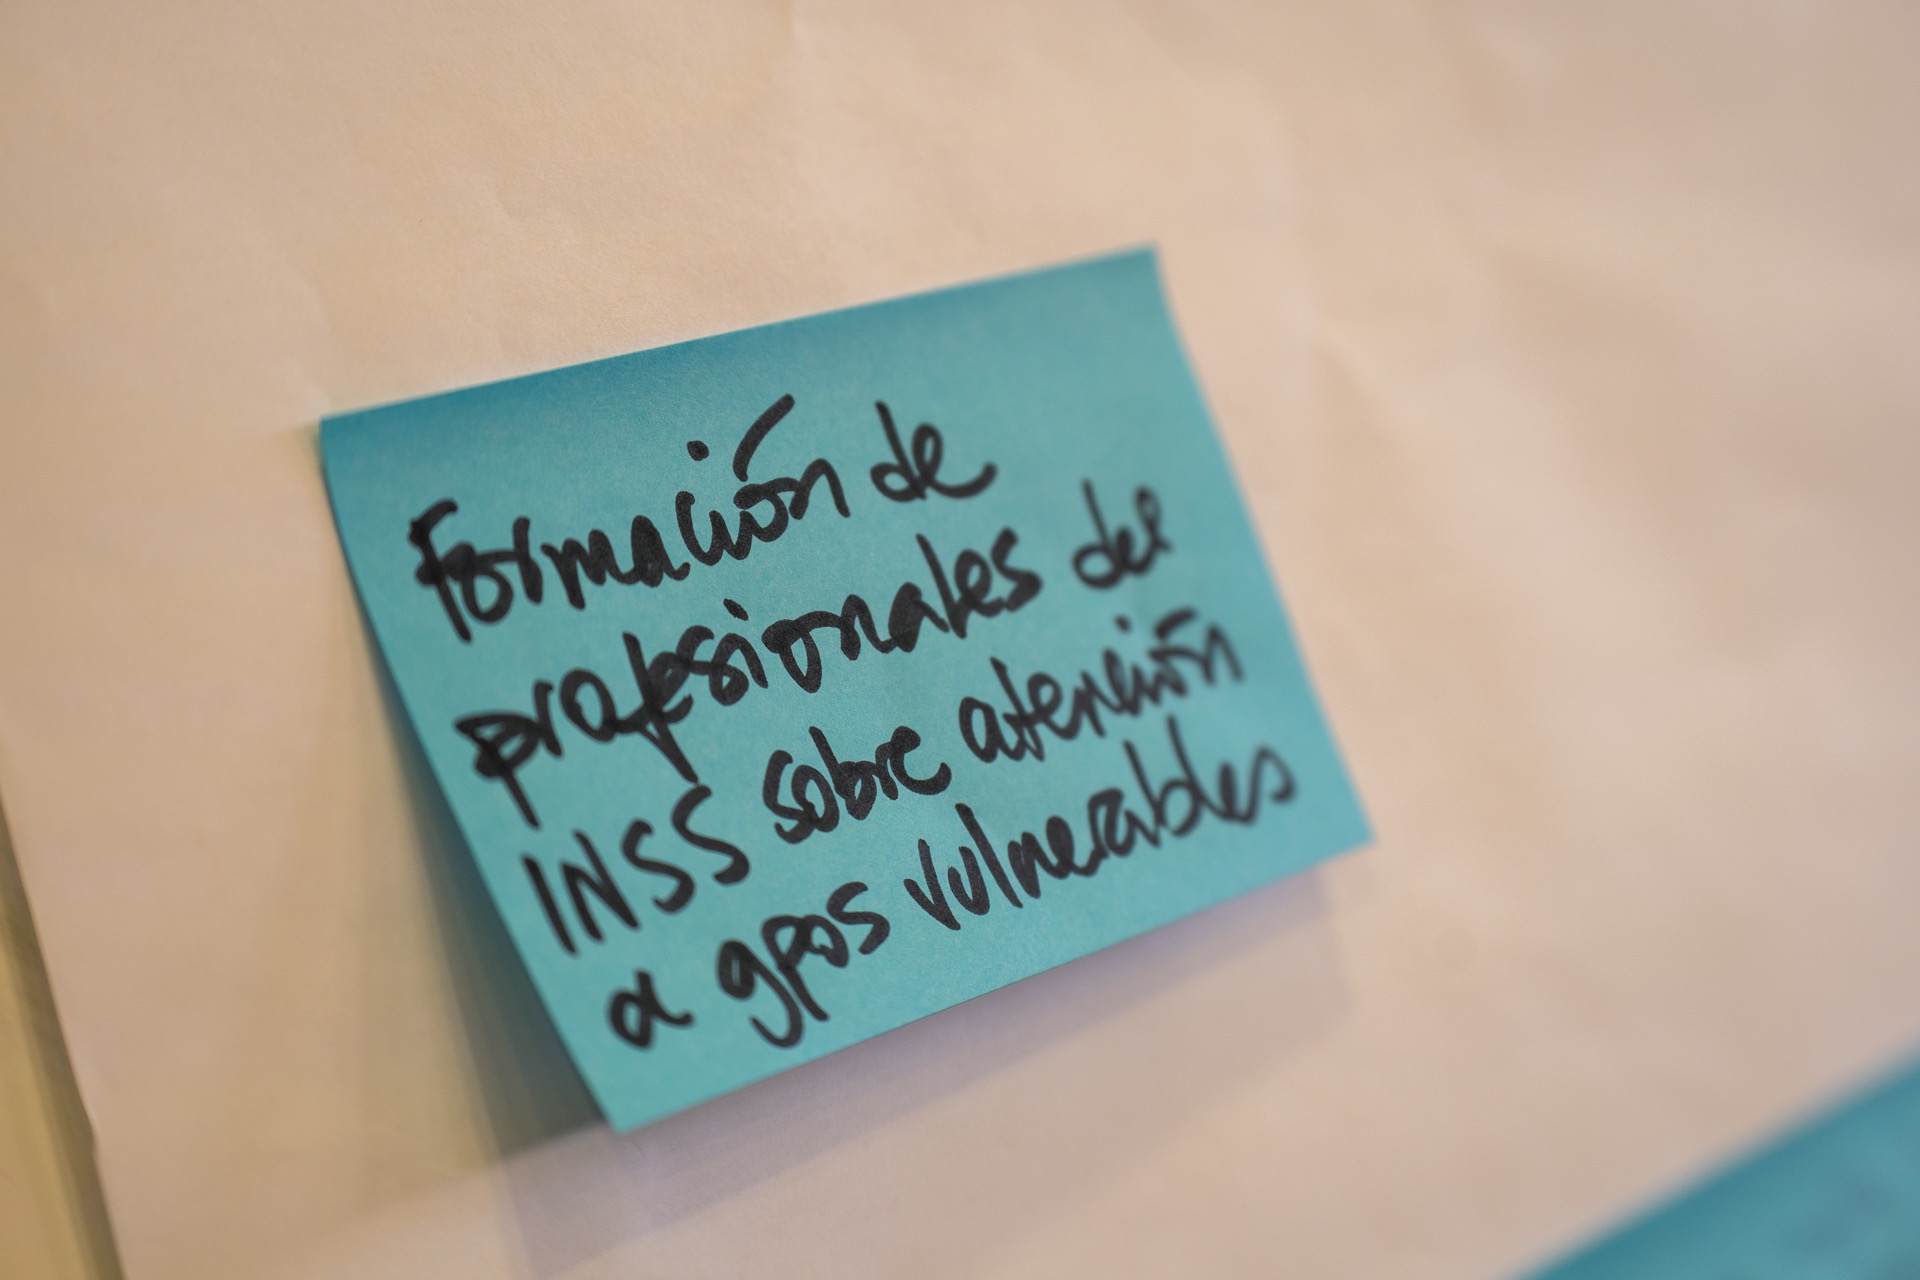 Formación de
profesionales del
INSS sobre atención
a gpos vulnerables